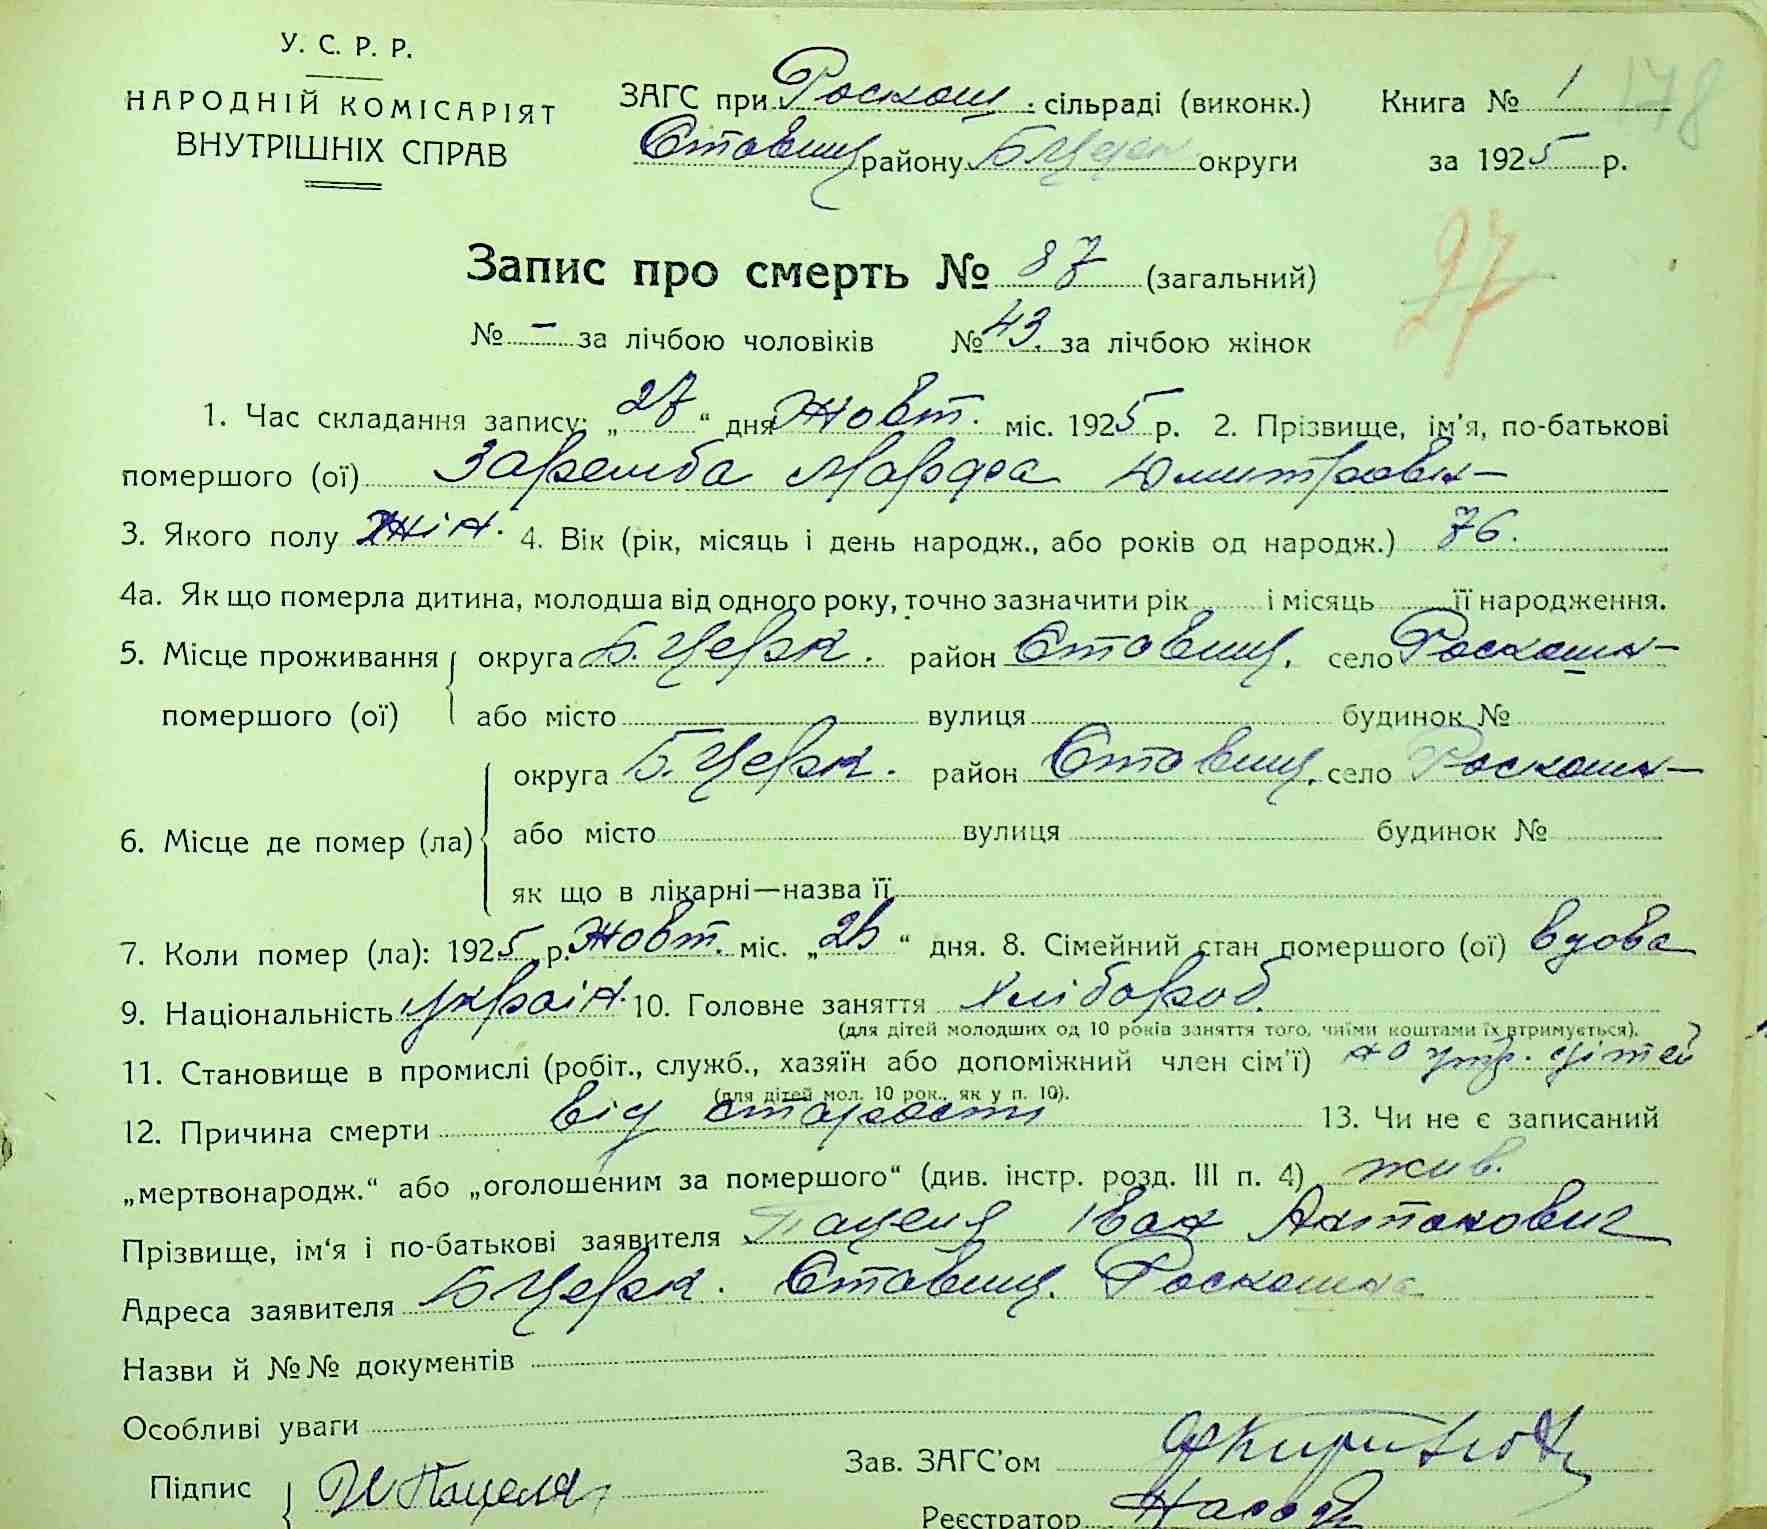 У. С. Р. Р.
НАРОДНІЙ КОМІСАРІЯТ
ВНУТРІШНІХ СПРАВ
ЗАГС при Роскош. сільраді (виконк.) Книга № 1 178
Ставищ району Б Церк округи за 1925 р.
Запис про смерть № 87 (загальний)
27
№ – за лічбою чоловіків № 43. за лічбою жінок
1. Час складання запису: „27“ дня Жовт. міс. 1925 р. 2. Прізвище, ім'я, по-батькові
помершого (ої) Заремба Марфа Дмитровн–
3. Якого полу Жін. 4. Вік (рік, місяць і день народж., або років од народж.) 76.
4а. Як що померла дитина, молодша від одного року, точно зазначити рік і місяць її народження.
5. Місце проживання округа Б. Церк. район Ставищ. село Роскошн–
помершого (ої) або місто вулиця будинок №
округа Б. Церк. район Ставищ. село Роскошн–
6. Місце де помер (ла) або місто вулиця будинок №
як що в лікарні—назва її
7. Коли помер (ла): 1925 р. Жовт. міс. „26“ дня. 8. Сімейний стан помершого (ої) вдова
9. Національність україн. 10. Головне заняття хлібороб.
(для дітей молодших од 10 років заняття того, чиїми коштами їх втримується).
11. Становище в промислі (робіт., служб., хазяїн або допоміжний член сім'ї) на утр. дітей
(для дітей мол. 10 рок., як у п. 10).
12. Причина смерти від старости 13. Чи не є записаний
„мертвонародж.“ або „оголошеним за помершого“ (див. інстр. розд. III п. 4) жив.
Прізвище, ім'я і по-батькові заявителя Пацеля Іван Антонович
Адреса заявителя Б Церк. Ставищ. Роскошна
Назви й №№ документів
Особливі уваги
Зав. ЗАГС'ом
Підпис И Пацеля
Реєстратор